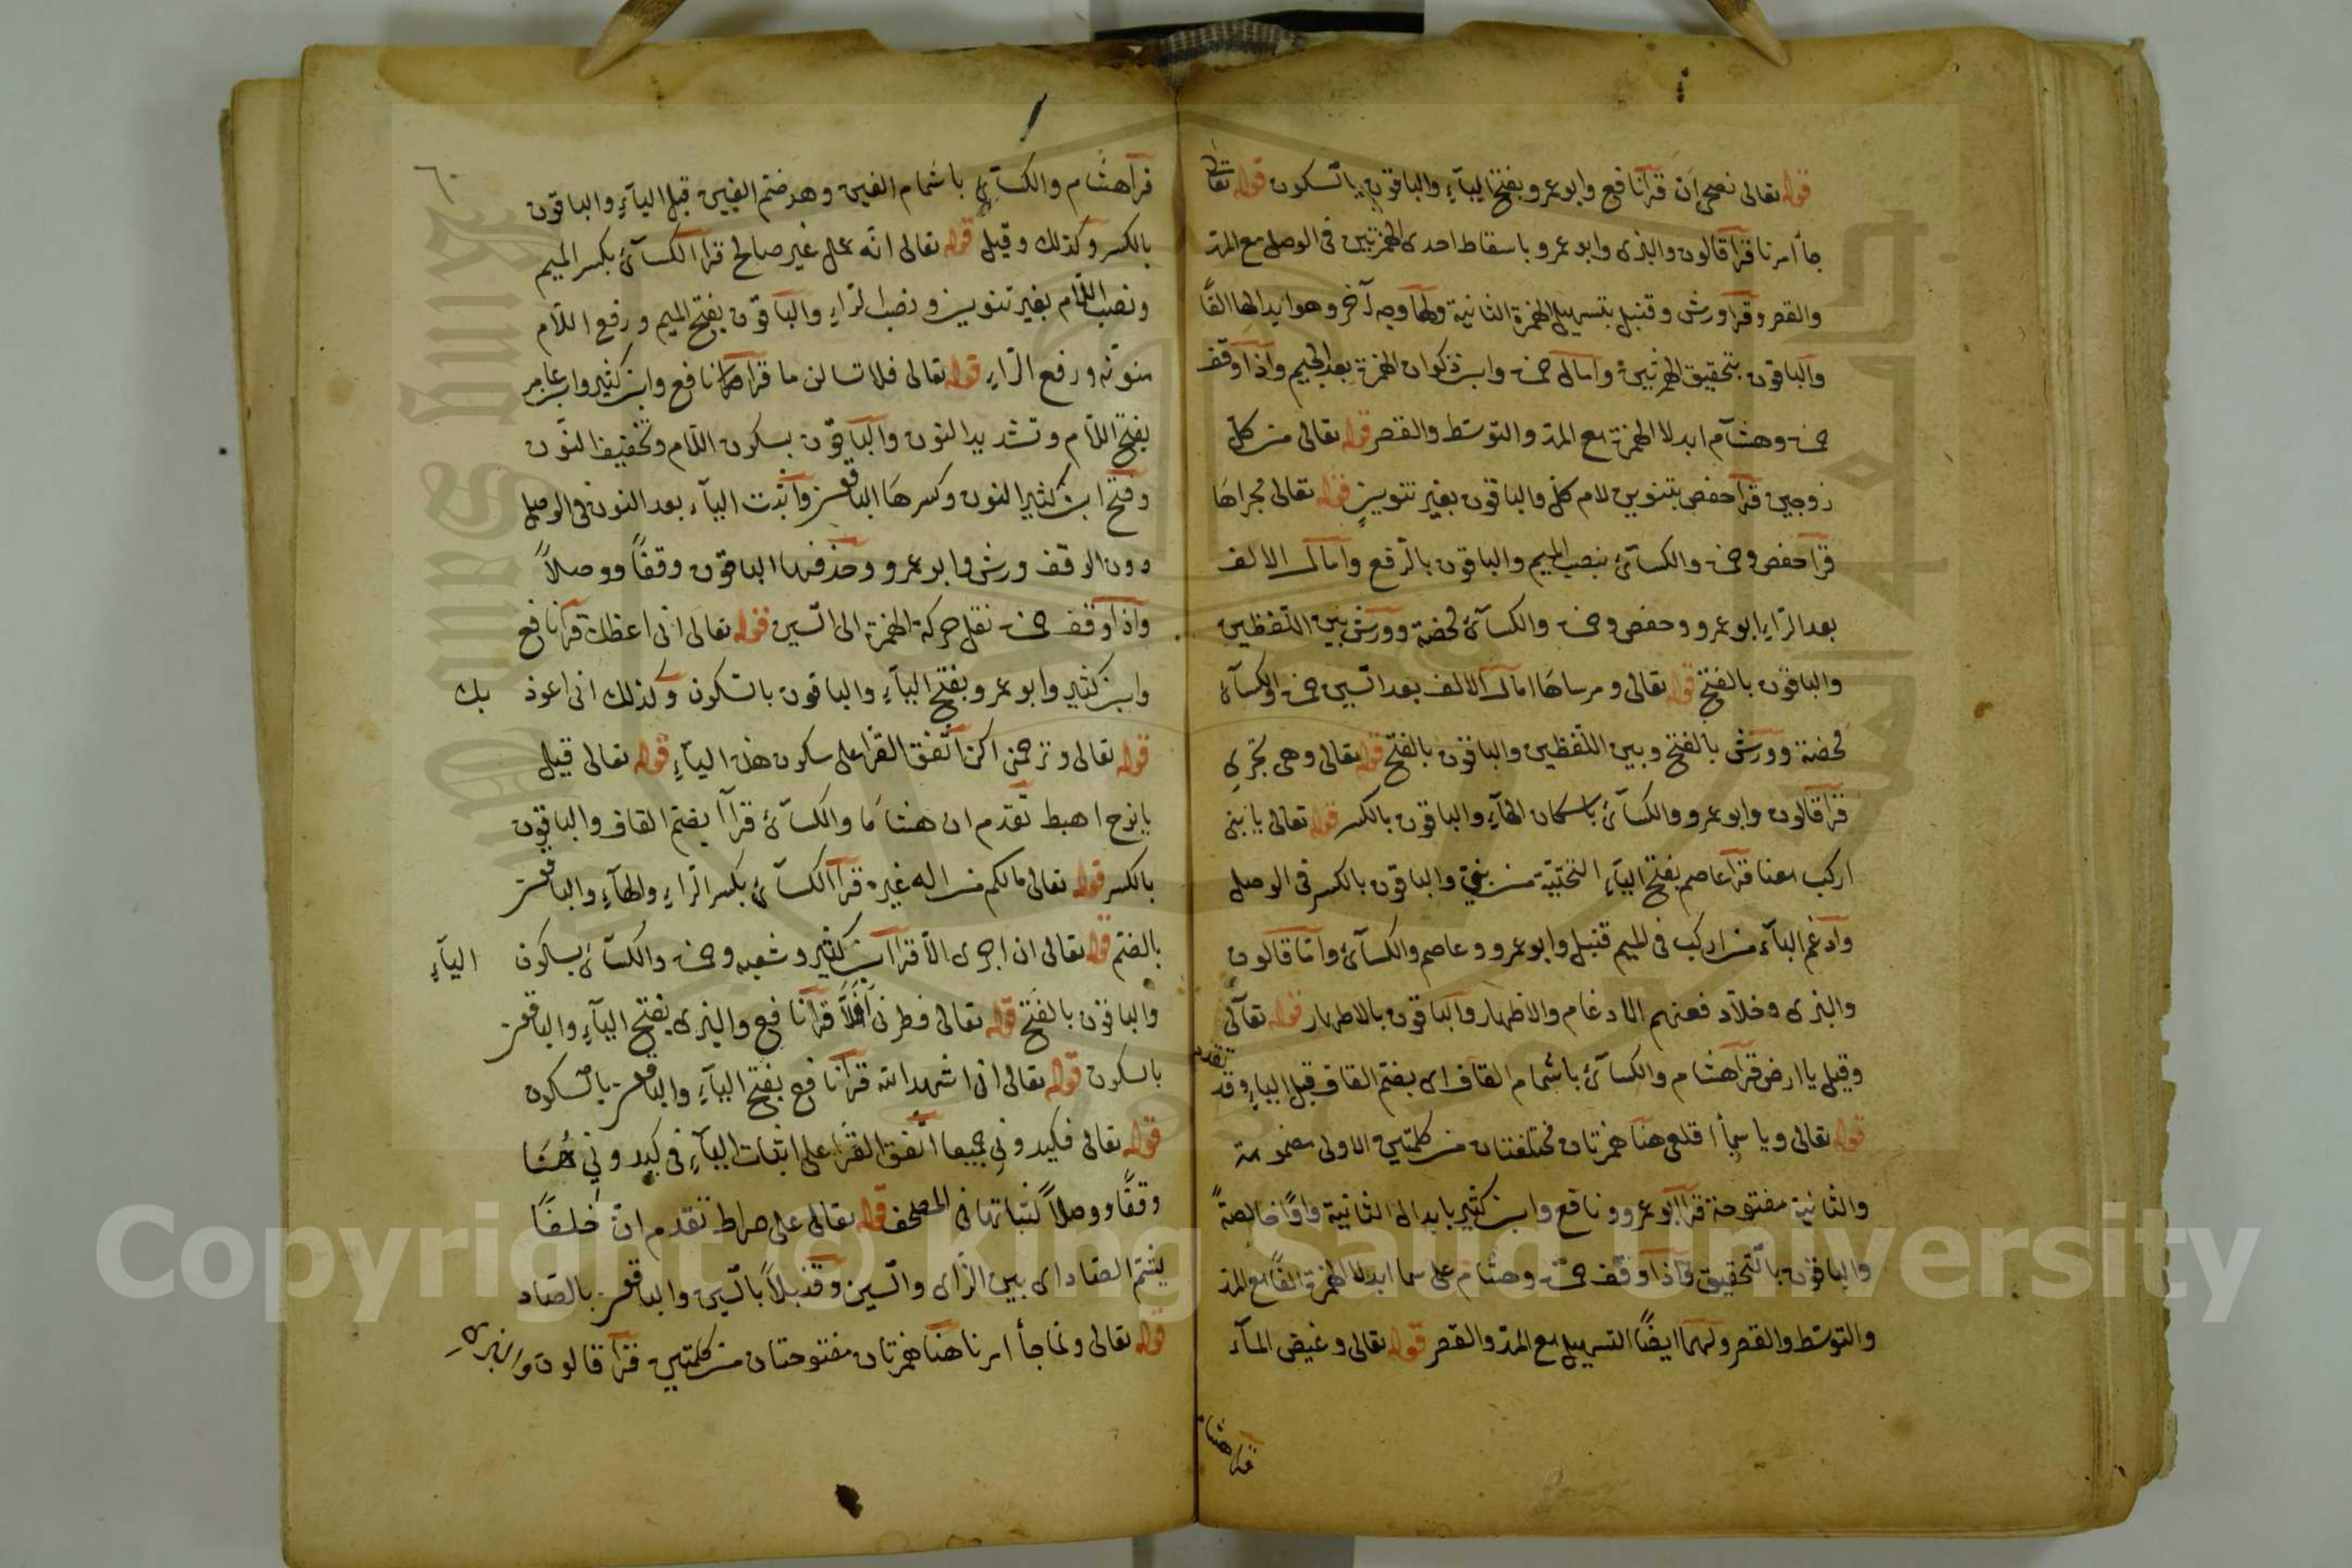 قوله تعالى نصحى ان قرأ نافع وابو عمرو بفتح الياء والباقون بالسكون قوله تعالى
جاء امرنا قرأ قالون والبزى وابو عمرو باسقاط احدى الهمزتين فى الوصل مع المد
والقصر وقرأ ورش وقنبل بتسهيل الهمزة الثانية ولهما وجه آخر وهو ابدالها الفًا
والباقون بتحقيق الهمزتين وامال حمزة وابن ذكوان الهمزة بعد الجيم واذا وقف
حمزة وهشام ابدلا الهمزة مع المد والتوسّط والقصر قوله تعالى من كلّ
زوجين قرأ حفص بتنوين لام كلّ والباقون بغير تنوينٍ قوله تعالى مجراها
قرأ حفص وحمزة والكسائى بنصب الميم والباقون بالرّفع وامال الالف
بعد الرّاء ابو عمرو وحفص وحمزة والكسائى محضة وورش بين اللفظين
والباقون بالفتح قوله تعالى ومرساها امال الالف بعد السّين حمزة والكسائى
محضة وورش بالفتح وبين اللفظين والباقون بالفتح قوله تعالى وهى تجرى
قرأ قالون وابو عمرو والكسائى باسكان الهاء والباقون بالكسر قوله تعالى يا بنى
اركب معنا قرأ عاصم بفتح الياء التحتيّة من بنى والباقون بالكسر فى الوصل
وادغم الباء من اركب فى الميم قنبل وابو عمرو وعاصم والكسائى وامّا قالون
والبزى وخلاد فعنهم الادغام والاظهار والباقون بالاظهار قوله تعالى
وقيل يا ارض قرأ هشام والكسائى باشمام القاف اى بضمّ القاف قبل الياء وقد تقدم
قوله تعالى ويا سماء اقلعى هنا همزتان مختلفتان من كلمتين الاولى مضمومة
والثانية مفتوحة قرأ ابو عمرو ونافع وابن كثير بابدال الثانية واوًا خالصةً
والباقون بالتحقيق واذا وقف حمزة وهشام على سما ابدلا الهمزة الفًا مع المد
والتوسّط والقصر ولهما ايضًا التسهيل مع المدّ والقصر قوله تعالى وغيض الماء
قرأ هشام
قرأ هشام والكسائى باشمام الغين وهو ضمّ الغين قبل الياء والباقون
بالكسر وكذلك وقيل قوله تعالى انّه عمل غير صالح قرأ الكسائى بكسر الميم
ونصب اللام بغير تنوين ونصب الراء والباقون بفتح الميم ورفع اللام
منوّنه ورفع الرّاء قوله تعالى فلا تسالن ما قرأ نافع وابن كثير وابن عامر
بفتح اللام وتشديد النون والباقون بسكون اللام وتخفيف النون
وفتح ابن كثير النون وكسرها الباقون واثبت الياء بعد النون فى الوصل
دون الوقف ورش وابو عمرو وحذفها الباقون وقفًا ووصلاً
واذا وقف حمزة نقل حركة الهمزة الى السّين قوله تعالى انى اعظك قرأ نافع
وابن كثير وابو عمرو بفتح الياء والباقون بالسّكون وكذلك انى اعوذ بك
قوله تعالى وترحمنى اكن اتّفق القرا على سكون هذه الياء قوله تعالى قيل
يا نوح اهبط تقدم ان هشامًا والكسائى قرأا بضمّ القاف والباقون
بالكسر قوله تعالى مالكم من اله غيره قرأ الكسائى بكسر الراء والهاء والباقون
بالضم قوله تعالى ان اجرى الا قرأ ابن كثير وشعبه وحمزة والكسائى بسكون الياء
والباقون بالفتح قوله تعالى فطرنى افلا قرأ نافع والبزى بفتح الياء والباقون
بالسكون قوله تعالى انى اشهد الله قرأ نافع بفتح الياء والباقون بالسّكون
قوله تعالى فكيدونى جميعا اتّفق القرّا على اثبات الياء فى كيدونى هُنا
وقفًا ووصلاً لثباتها فى المصحف قوله تعالى على صراط تقدم انّ خلفًا
يشمّ الصّاد اى بين الزّاى والسّين وقنبلاً بالسّين والباقون بالصّاد
قوله تعالى ولما جاء امرنا هنا همزتان مفتوحتان من كلمتين قرأ قالون والبزى
Copyright © King Saud University